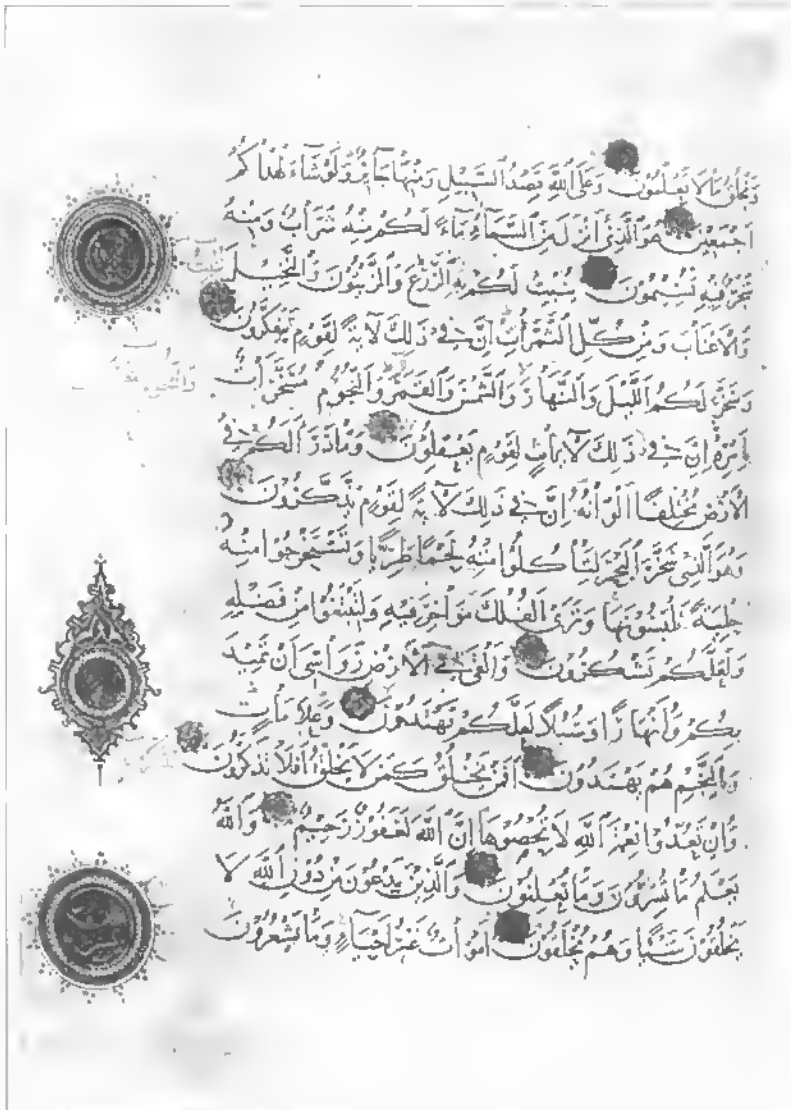 وَيَخْلُقُ مَا لَا تَعْلَمُونَ وَعَلَى اللَّهِ قَصْدُ السَّبِيلِ وَمِنْهَا جَائِرٌ وَلَوْ شَاءَ لَهَدَاكُمْ
أَجْمَعِينَ هُوَ الَّذِي أَنْزَلَ مِنَ السَّمَاءِ مَاءً لَكُمْ مِنْهُ شَرَابٌ وَمِنْهُ
شَجَرٌ فِيهِ تُسِيمُونَ يُنْبِتُ لَكُمْ بِهِ الزَّرْعَ وَالزَّيْتُونَ وَالنَّخِيلَ
وَالْأَعْنَابَ وَمِنْ كُلِّ الثَّمَرَاتِ إِنَّ فِي ذَلِكَ لَآيَةً لِقَوْمٍ يَتَفَكَّرُونَ
وَسَخَّرَ لَكُمُ اللَّيْلَ وَالنَّهَارَ وَالشَّمْسَ وَالْقَمَرَ وَالنُّجُومَ مُسَخَّرَاتٍ
بِأَمْرِهِ إِنَّ فِي ذَلِكَ لَآيَاتٍ لِقَوْمٍ يَعْقِلُونَ وَمَا ذَرَأَ لَكُمْ فِي
الْأَرْضِ مُخْتَلِفًا أَلْوَانُهُ إِنَّ فِي ذَلِكَ لَآيَةً لِقَوْمٍ يَذَّكَّرُونَ
وَهُوَ الَّذِي سَخَّرَ الْبَحْرَ لِتَأْكُلُوا مِنْهُ لَحْمًا طَرِيًّا وَتَسْتَخْرِجُوا مِنْهُ
حِلْيَةً تَلْبَسُونَهَا وَتَرَى الْفُلْكَ مَوَاخِرَ فِيهِ وَلِتَبْتَغُوا مِنْ فَضْلِهِ
وَلَعَلَّكُمْ تَشْكُرُونَ وَأَلْقَى فِي الْأَرْضِ رَوَاسِيَ أَنْ تَمِيدَ
بِكُمْ وَأَنْهَارًا وَسُبُلًا لَعَلَّكُمْ تَهْتَدُونَ وَعَلَامَاتٍ
وَبِالنَّجْمِ هُمْ يَهْتَدُونَ أَفَمَنْ يَخْلُقُ كَمَنْ لَا يَخْلُقُ أَفَلَا تَذَكَّرُونَ
وَإِنْ تَعُدُّوا نِعْمَةَ اللَّهِ لَا تُحْصُوهَا إِنَّ اللَّهَ لَغَفُورٌ رَحِيمٌ وَاللَّهُ
يَعْلَمُ مَا تُسِرُّونَ وَمَا تُعْلِنُونَ وَالَّذِينَ يَدْعُونَ مِنْ دُونِ اللَّهِ لَا
يَخْلُقُونَ شَيْئًا وَهُمْ يُخْلَقُونَ أَمْوَاتٌ غَيْرُ أَحْيَاءٍ وَمَا يَشْعُرُونَ